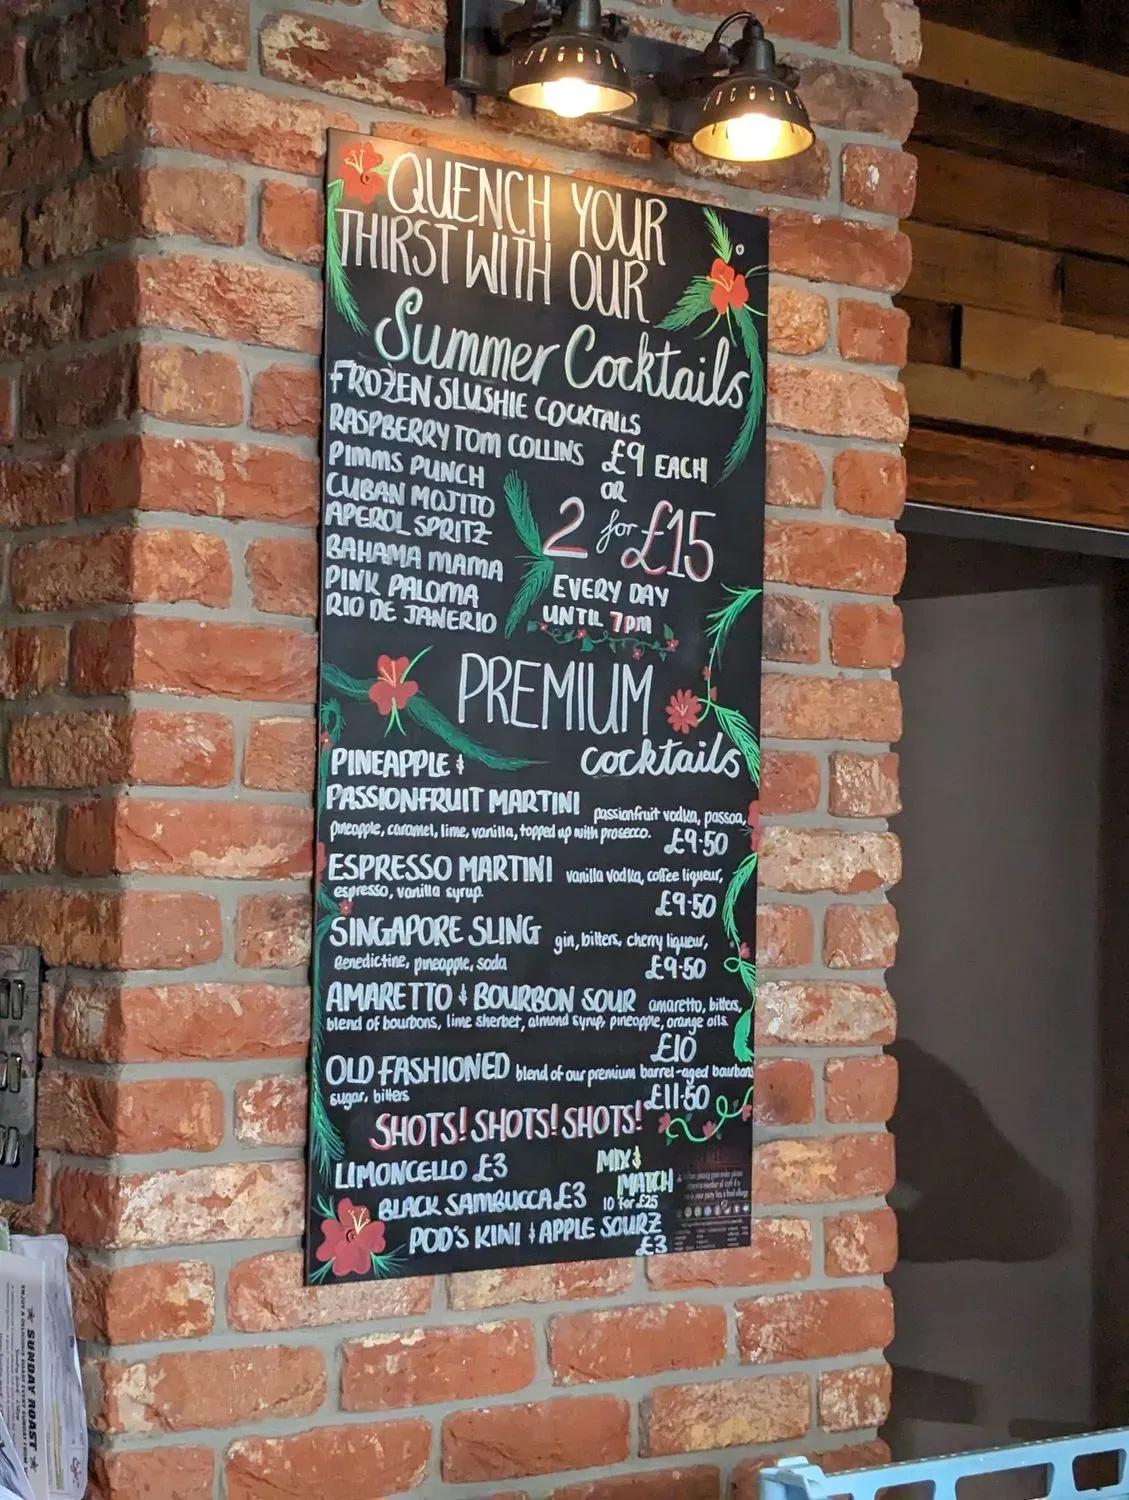 QUENCH YOUR
THIRST WITH OUR
Summer Cocktails
FROZEN SLUSHIE COCKTAILS
RASPBERRY TOM COLLINS
£9 EACH
PIMMS PUNCH
OR
CUBAN MOJITO
2 for £15
APEROL SPRITZ
BAHAMA MAMA
EVERY DAY
PINK PALOMA
UNTIL 7pm
RIO DE JANERIO
PREMIUM
cocktails
PINEAPPLE &
PASSIONFRUIT MARTINI passionfruit vodka, passoa,
pineapple, caramel, lime, vanilla, topped up with prosecco. £9·50
ESPRESSO MARTINI vanilla vodka, coffee liqueur,
espresso, vanilla syrup.
£9·50
SINGAPORE SLING gin, bitters, cherry liqueur,
Benedictine, pineapple, soda £9·50
AMARETTO & BOURBON SOUR amaretto, bitters,
blend of bourbons, lime sherbet, almond syrup, pineapple, orange oils.
£10
OLD FASHIONED blend of our premium barrel-aged bourbons
sugar, bitters £11·50
SHOTS! SHOTS! SHOTS!
LIMONCELLO £3
MIX &
MATCH
10 for £25
BLACK SAMBUCCA £3
POD'S KINI & APPLE SOURZ
£3
SUNDAY ROAST